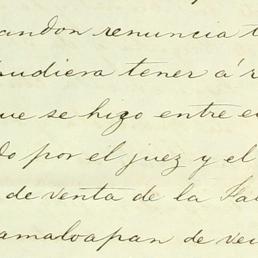 andon renuncia t
udiera tener á r
ue se hizo entre e
do por el juez y el
de venta de la Ta
amaloapan de ve